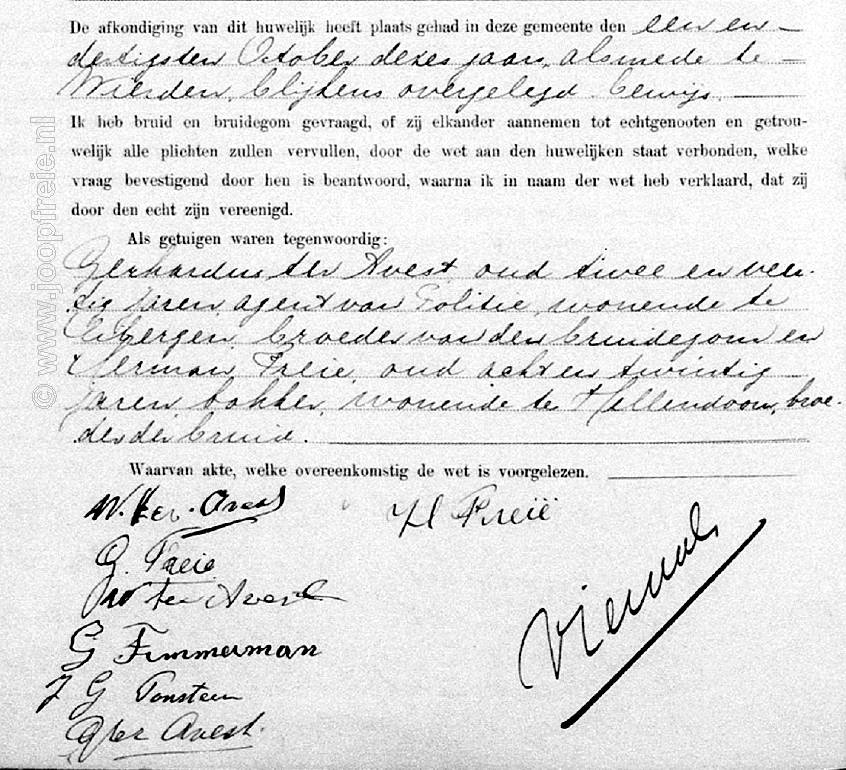 De afkondiging van dit huwelijk heeft plaats gehad in deze gemeente den een en
dertigsten October dezes jaars, alsmede te
Wierden, blijkens overgelegd bewijs.
Ik heb bruid en bruidegom gevraagd, of zij elkander aannemen tot echtgenooten en getrou-
welijk alle plichten zullen vervullen, door de wet aan den huwelijken staat verbonden, welke
vraag bevestigend door hen is beantwoord, waarna ik in naam der wet heb verklaard, dat zij
door den echt zijn vereenigd.
Als getuigen waren tegenwoordig:
Gerhardus ter Avest, oud twee en veer-
tig jaren, agent van Politie, wonende te
Eibergen, broeder van den bruidegom en
Herman Freie, oud acht en twintig
jaren, bakker, wonende te Hellendoorn, broe-
der der bruid.
Waarvan akte, welke overeenkomstig de wet is voorgelezen.
W. ter Avest
H Freië
G. Freie
ter Avest
G Timmerman
J G Tonsteen
G ter Avest.
© www.joopfreie.nl